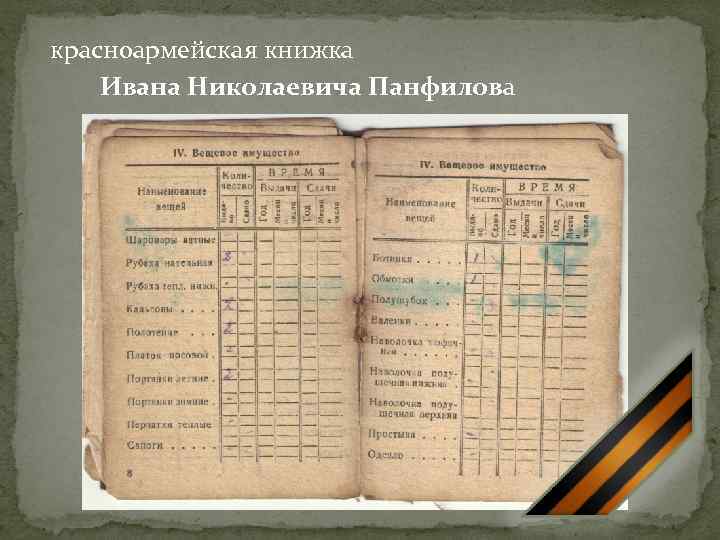 красноармейская книжка
Ивана Николаевича Панфилова
IV. Вещевое имущество
Наименование вещей
Количество
ВРЕМЯ
Выдачи
Сдачи
Сдано
Год
Месяц и число
Год
Месяц и число
Шаровары ватные
Рубаха нательная
Рубаха тепл. нижн.
Кальсоны . . . .
Полотенце . . .
Платок носовой .
Портянки летние .
Портянки зимние .
Перчатки теплые
Сапоги . . . . .
8
IV. Вещевое имущество
Наименование вещей
Количество
ВРЕМЯ
Выдачи
Сдачи
Сдано
Год
Месяц и числа
Год
Месяц и число
Ботинки . . . . . 1
Обмотки . . . . 1
Полушубок . . .
Валенки . . . . .
Наволочка тюфячней . . . . . .
Наволочка подушечная нижняя .
Наволочка подушечная верхняя
Простыня . . . .
Одеяло . . . . .